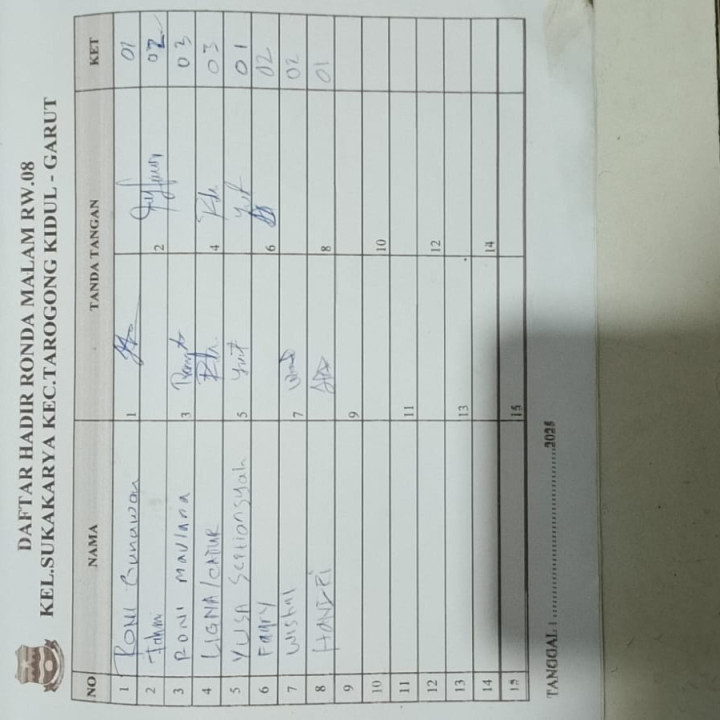 DAFTAR HADIR RONDA MALAM RW.08
KEL.SUKAKARYA KEC.TAROGONG KIDUL - GARUT
NO NAMA TANDA TANGAN KET
1 RONI Gunawan 1 01
2 Fahmi 2 02
3 RONI MAULANA 3 03
4 LIGNA/CATUR 4 03
5 YUSA Setiionsyah 5 01
6 Fahry 6 02
7 Wishal 7 02
8 HANDRI 8 01
9 9
10 10
11 11
12 12
13 13
14 14
15 15
TANGGAL : ..............................2025